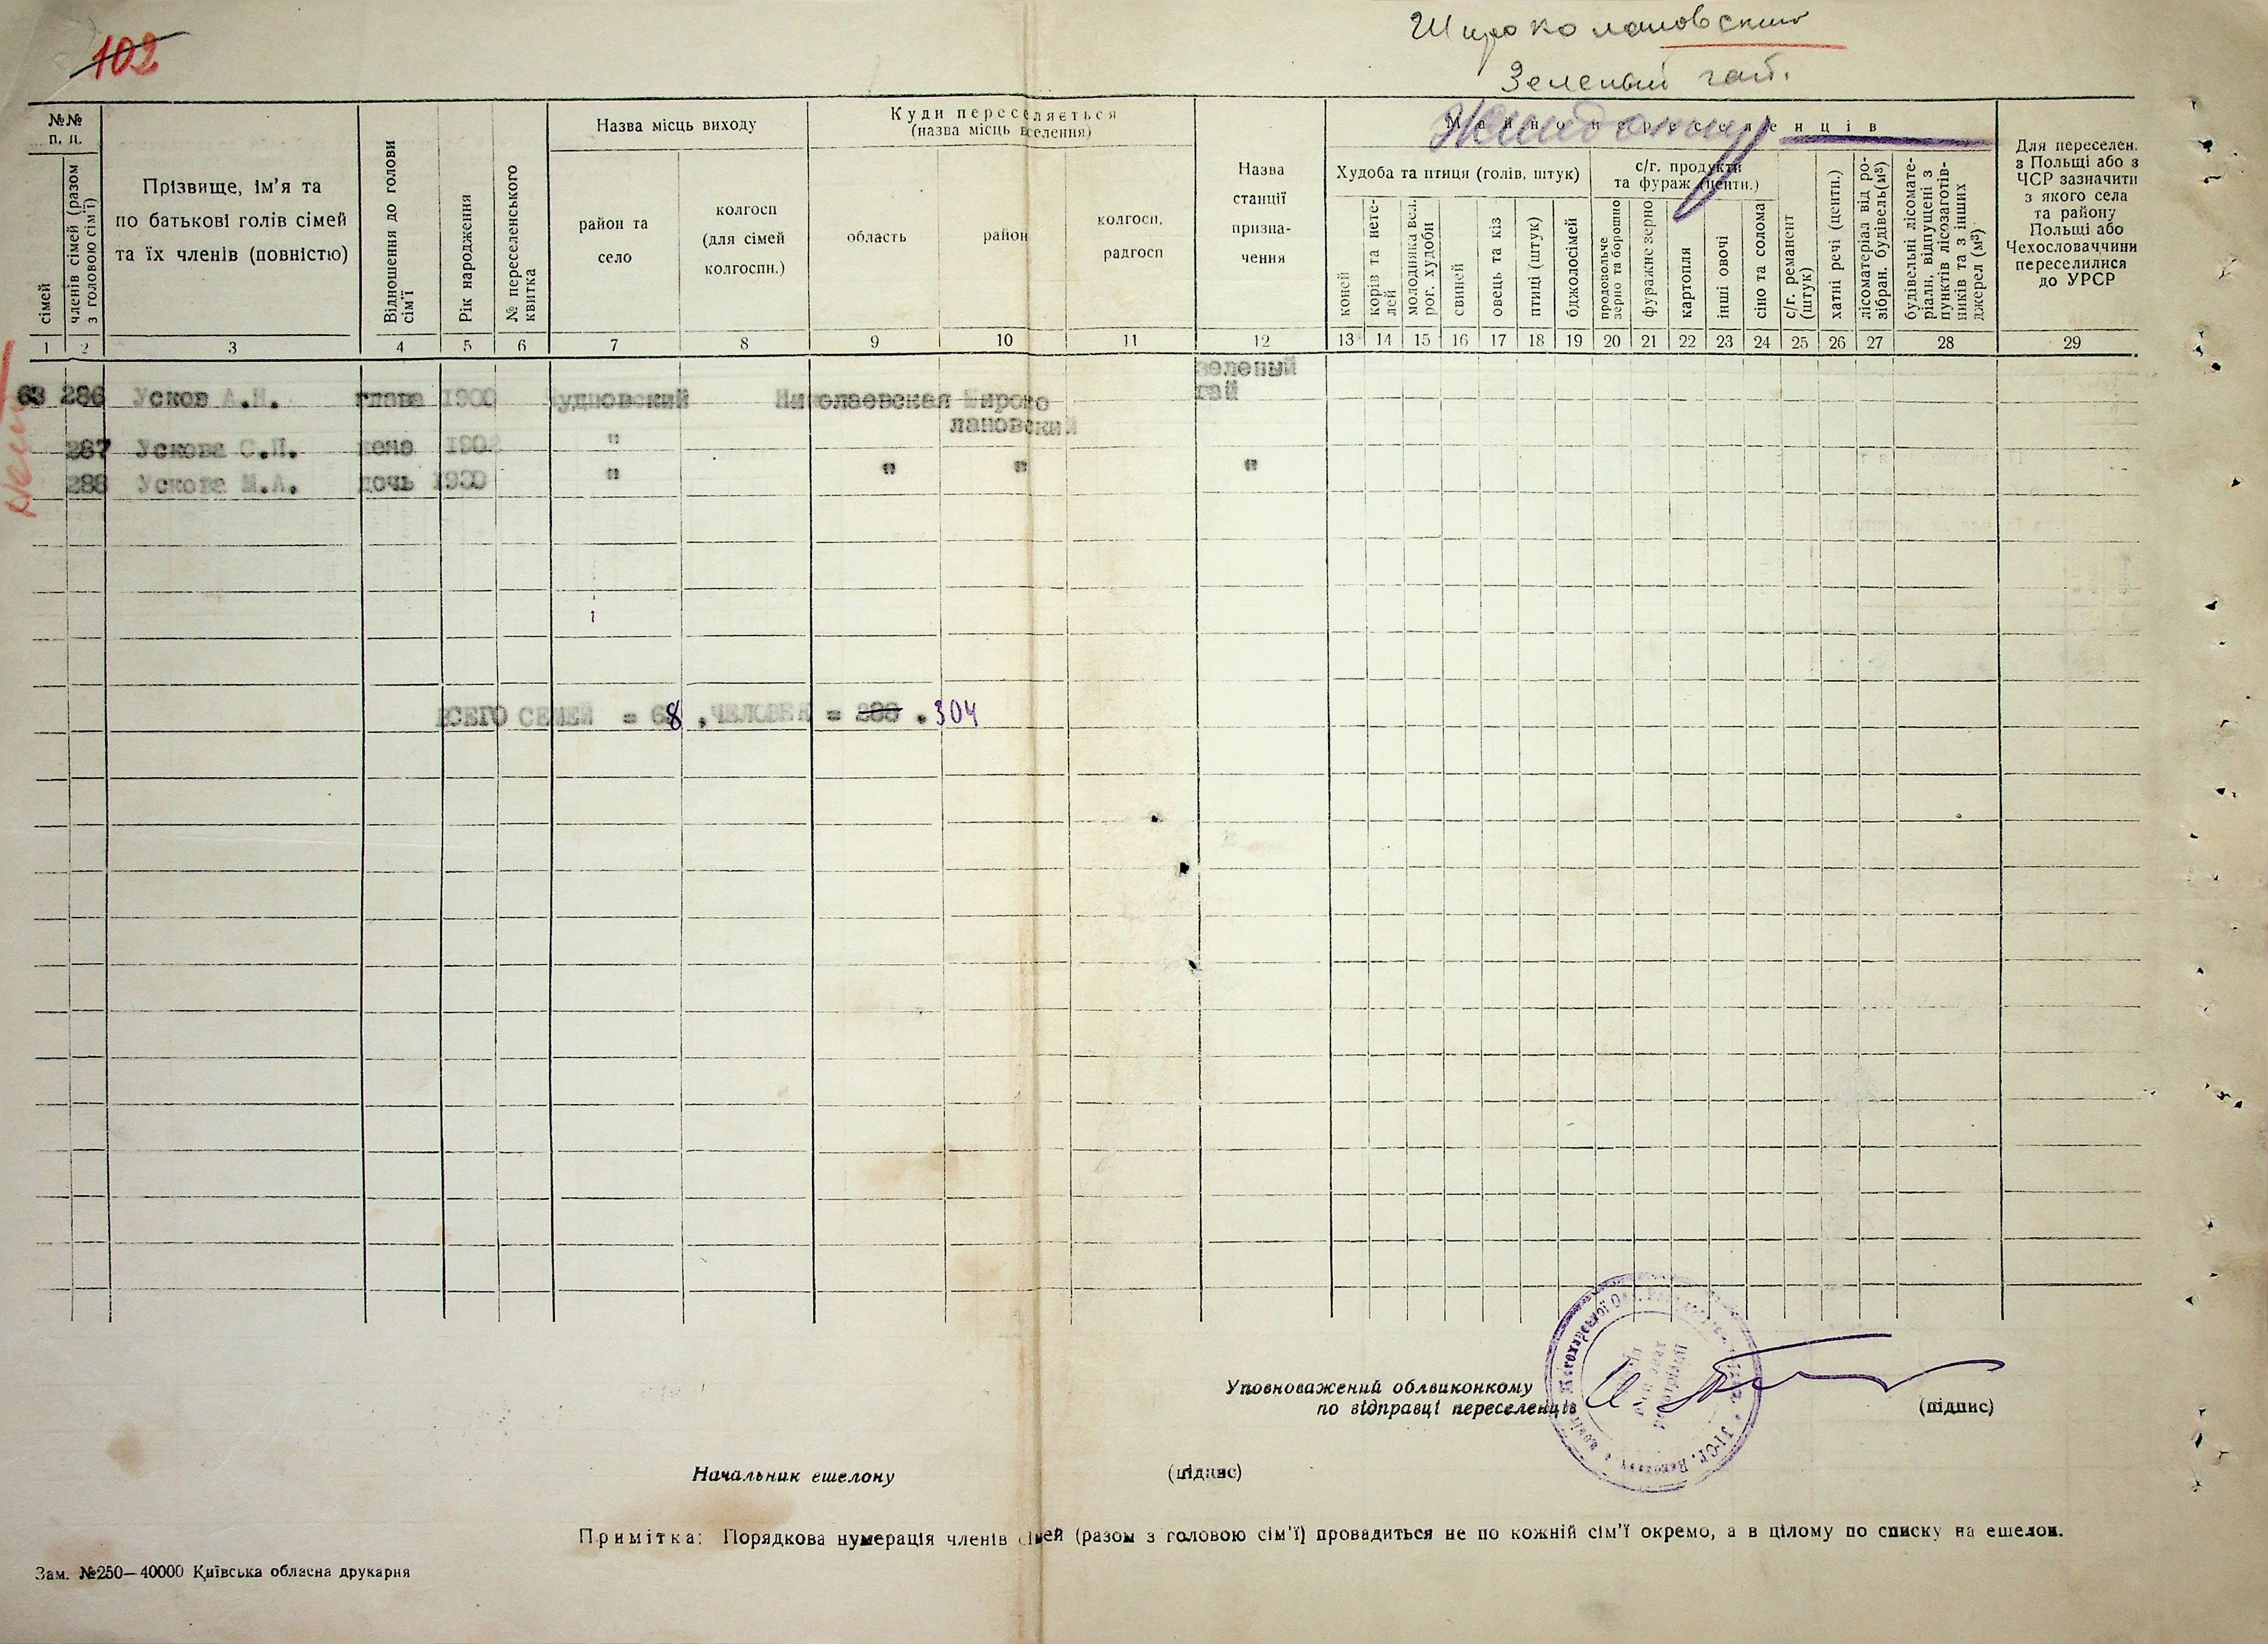 102
Широколановский
Зеленый гай.
№№ п. п.
сімей
членів сімей (разом з головою сім'ї)
Прізвище, ім'я та по батькові голів сімей та їх членів (повністю)
Відношення до голови сім'ї
Рік народження
№ переселенського квитка
Назва місць виходу
район та село
колгосп (для сімей колгоспн.)
Куди переселяється (назва місць вселення)
область
район
колгосп, радгосп
Назва станції призна- чення
Майно переселенців
Худоба та птиця (голів, штук)
коней
корів та нете- лей
молодняка вел. рог. худоби
свиней
овець та кіз
птиці (штук)
бджолосімей
с/г. продукти та фураж (центн.)
продовольче зерно та борошно
фуражне зерно
картопля
інші овочі
сіно та солома
с/г. реманент (штук)
хатні речі (центн.)
лісоматеріал від ро- зібран. будівель (м³)
будівельні лісомате- ріали, відпущені з пунктів лісозаготів- ників та з інших джерел (м³)
Для переселен. з Польщі або з ЧСР зазначити з якого села та району Польщі або Чехословаччини переселилися до УРСР
1 2 3 4 5 6 7 8 9 10 11 12 13 14 15 16 17 18 19 20 21 22 23 24 25 26 27 28 29
63 286 Усков А.Н. глава 1900 Чудновский Николаевская Широко лановский зеленый гай
287 Ускова С.П. жена 1902 "
288 Ускова М.А. дочь 1930 " " " "
ВСЕГО СЕМЕЙ = 68 , ЧЕЛОВЕК = 288 . 304
Уповноважений облвиконкому
по відправці переселенців
(підпис)
Начальник ешелону (підпис)
Примітка: Порядкова нумерація членів сімей (разом з головою сім'ї) провадиться не по кожній сім'ї окремо, а в цілому по списку на ешелон.
Зам. №250—40000 Київська обласна друкарня